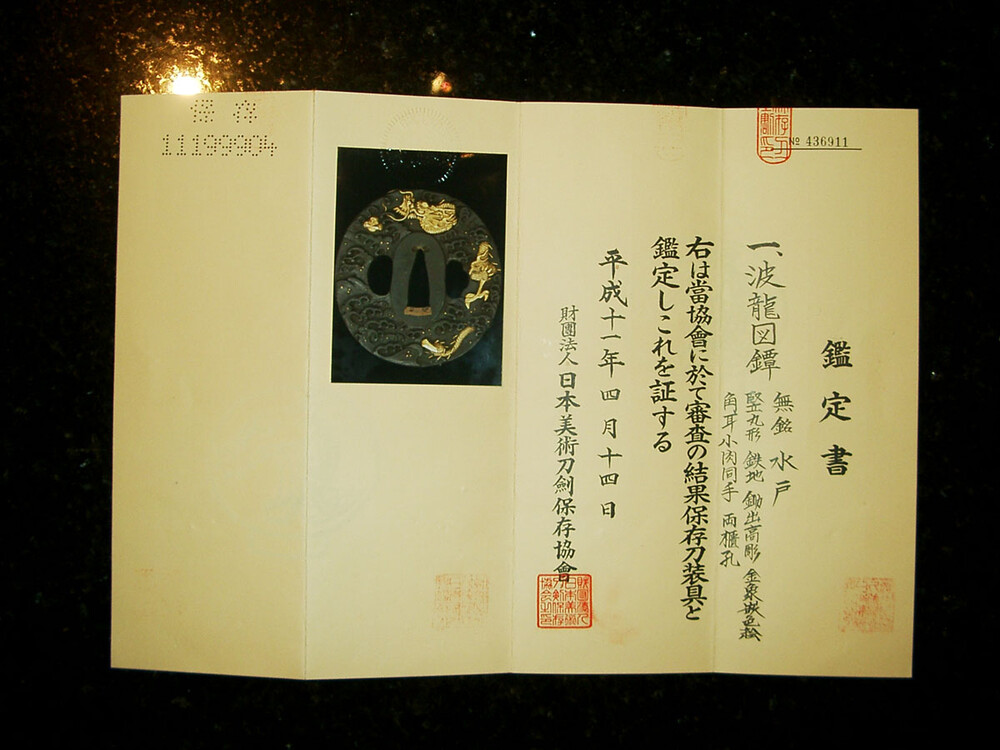 № 436911
鑑定書
一、波龍図鐔
無銘 水戸
竪丸形 鉄地 鋤出高彫 金象嵌色絵
角耳小肉同手 両櫃孔
右は當協會に於て審査の結果保存刀装具と
鑑定しこれを証する
平成十一年四月十四日
財團法人日本美術刀劍保存協會
保存
11199904